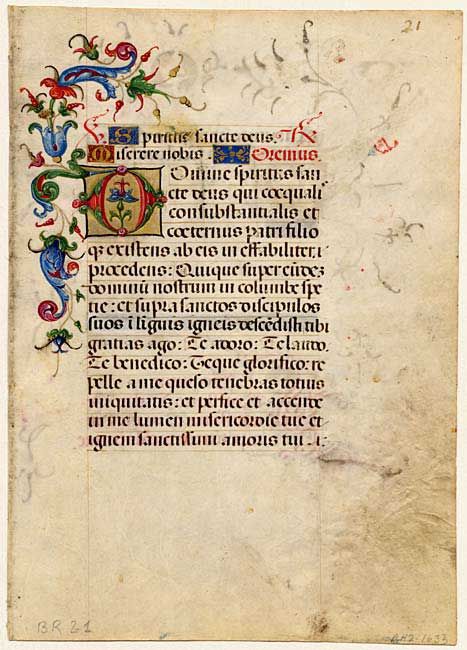 21
V. Spiritus sancte deus. R.
Miserere nobis. Oremus.
Domine spiritus san
cte deus qui coequalis
consubstantialis et
coeternus patri filio
q existens ab eis ineffabiliter
procedens: Quique super eūdez
dominū nostrum in columbe spe
tie: et supra sanctos discipulos
suos i liguis igneis descēdisti tibi
gratias ago: Te adoro: Te laudo.
Te benedico: Teque glorifico: re
pelle a me queso tenebras totius
iniquitatis: et perfice et accende
in me lumen misericordie tue et
ignem sanctissimi amoris tui
BR 21